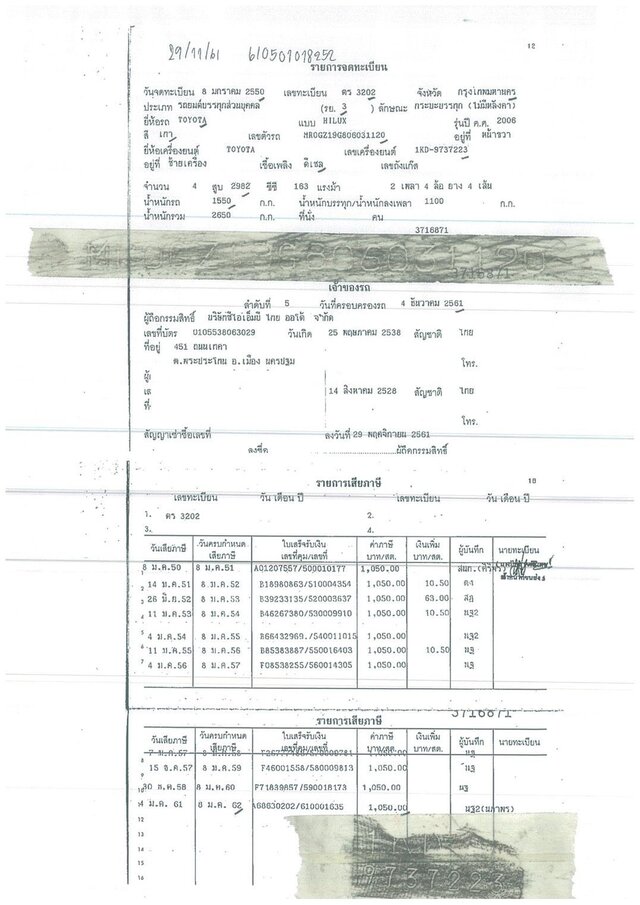 29/11/61 610501018252
12
รายการจดทะเบียน
วันจดทะเบียน 8 มกราคม 2550 เลขทะเบียน ตร 3202 จังหวัด กรุงเทพมหานคร
ประเภท รถยนต์บรรทุกส่วนบุคคล (รย. 3 ) ลักษณะ กระบะบรรทุก (ไม่มีหลังคา)
ยี่ห้อรถ TOYOTA แบบ HILUX รุ่นปี ค.ศ. 2006
สี เทา เลขตัวรถ MR0GZ19G806031120 อยู่ที่ หน้าขวา
ยี่ห้อเครื่องยนต์ TOYOTA เลขเครื่องยนต์ 1KD-9737223
อยู่ที่ ซ้ายเครื่อง เชื้อเพลิง ดีเซล เลขถังแก๊ส
จำนวน 4 สูบ 2982 ซีซี 163 แรงม้า 2 เพลา 4 ล้อ ยาง 4 เส้น
น้ำหนักรถ 1550 ก.ก. น้ำหนักบรรทุก/น้ำหนักลงเพลา 1100 ก.ก.
น้ำหนักรวม 2650 ก.ก. ที่นั่ง คน
3716871
3716871
เจ้าของรถ
ลำดับที่ 5 วันที่ครอบครองรถ 4 ธันวาคม 2561
ผู้ถือกรรมสิทธิ์ บริษัทซีไอเอ็มบี ไทย ออโต้ จำกัด
เลขที่บัตร 0105538063029 วันเกิด 25 พฤษภาคม 2538 สัญชาติ ไทย
ที่อยู่ 451 ถนนเทศา
ต.พระประโทน อ.เมือง นครปฐม
โทร.
14 สิงหาคม 2528 สัญชาติ ไทย
โทร.
สัญญาเช่าซื้อเลขที่ ลงวันที่ 29 พฤศจิกายน 2561
ลงชื่อ ผู้ถือกรรมสิทธิ์
รายการเสียภาษี
18
เลขทะเบียน วัน เดือน ปี เลขทะเบียน วัน เดือน ปี
1. ตร 3202 2.
3. 4.
วันเสียภาษี วันครบกำหนดเสียภาษี ใบเสร็จรับเงิน เลขที่คุม/เลขที่ ค่าภาษี บาท/สต. เงินเพิ่ม บาท/สต. ผู้บันทึก นายทะเบียน
1 8 ม.ค.50 8 ม.ค.51 A01207557/509010177 1,050.00
2 14 ม.ค.51 8 ม.ค.52 B18980863/510004354 1,050.00 10.50
3 26 มิ.ย.52 8 ม.ค.53 B39233135/520003637 1,050.00 63.00
4 11 ม.ค.53 8 ม.ค.54 B46267380/530009910 1,050.00 10.50 นฐ2
5 4 ม.ค.54 8 ม.ค.55 B66432969./540011015 1,050.00 นฐ2
6 11 ม.ค.55 8 ม.ค.56 B85383887/550016403 1,050.00 10.50 นฐ
7 4 ม.ค.56 8 ม.ค.57 F08538255/560014305 1,050.00 นฐ
3716871
รายการเสียภาษี
วันเสียภาษี วันครบกำหนดเสียภาษี ใบเสร็จรับเงิน เลขที่คุม/เลขที่ ค่าภาษี บาท/สต. เงินเพิ่ม บาท/สต. ผู้บันทึก นายทะเบียน
8 7 ม.ค.57 1,050.00 นฐ
9 15 ธ.ค.57 8 ม.ค.59 F46001558/580009813 1,050.00 นฐ
10 30 ธ.ค.58 8 ม.ค.60 F71839857/590018173 1,050.00 นฐ
11 4 ม.ค. 61 8 ม.ค. 62 A68630202/610001635 1,050.00 นฐ2(นภาพร)
12
13
14
15
16
9737223